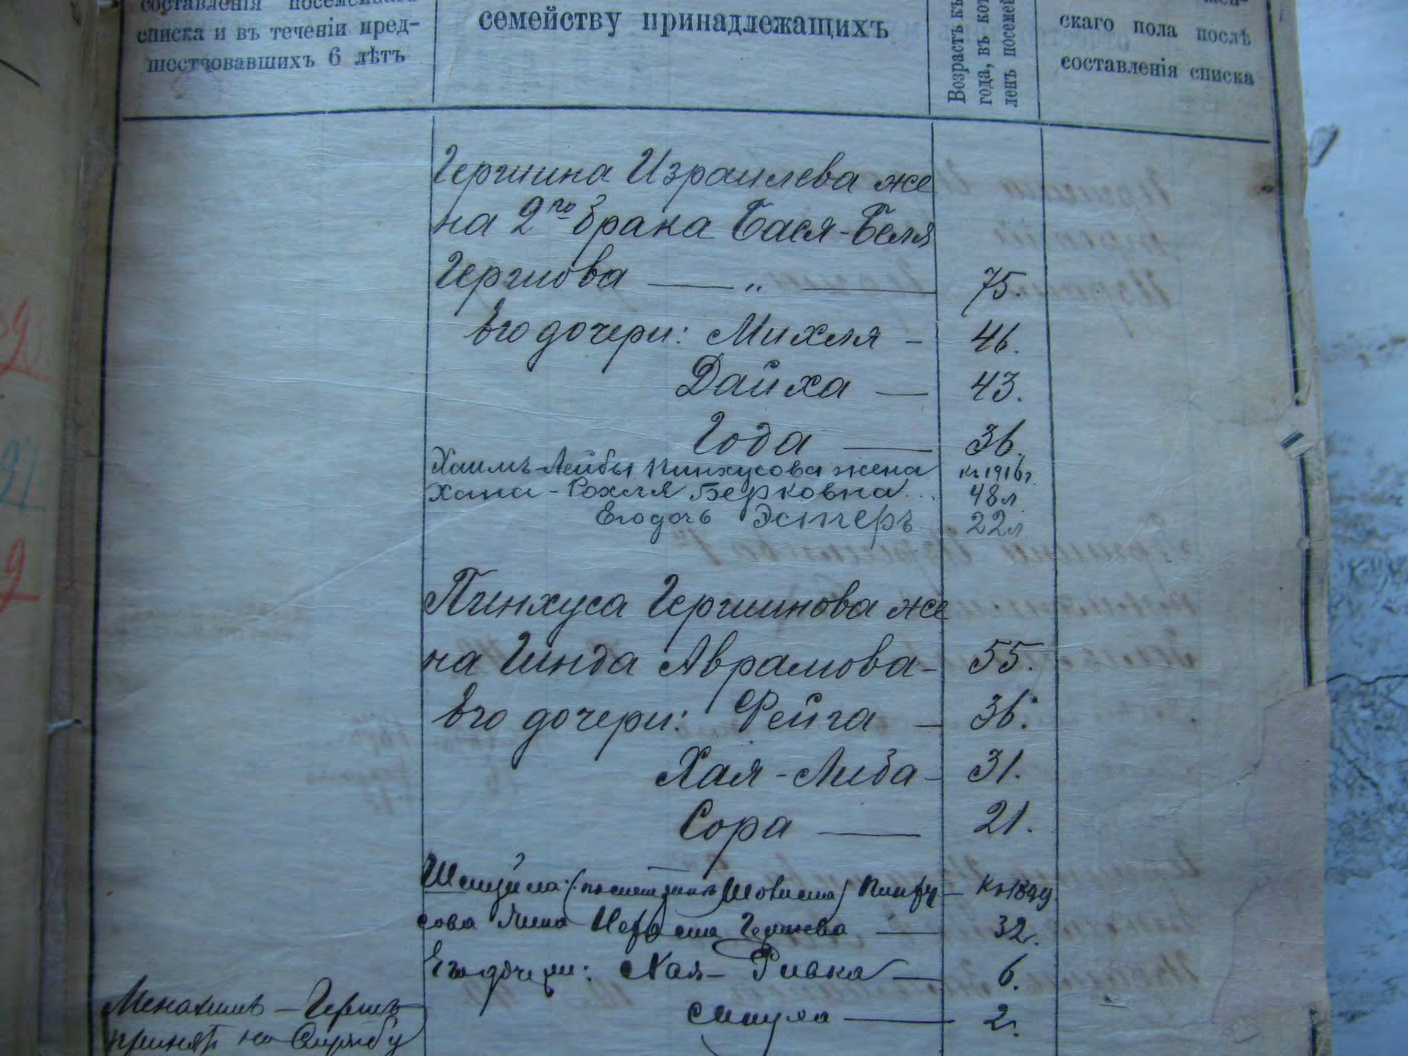 составленія посемейнаго
списка и въ теченіи пред-
шествовавшихъ 6 лѣтъ
семейству принадлежащихъ
Возрастъ къ
года, въ кот
ленъ посемей
скаго пола послѣ
составленія списка
Гершина Израилева же
на 2го брака Бася-Беля
Гершова — „ — 75.
Его дочери: Михля - 46.
Дайха — 43.
Года — 36.
Хаимъ-Лейбы Пинхусова жена къ 1916 г.
Хана-Рохля Берковна... 48 л
Его дочь Эстеръ 22 л
Пинхуса Гершинова же
на Гинда Аврамова - 55.
Его дочери: Фейга - 36.
Хая-Либа - 31.
Сора — 21.
Шмуйла
сова жена Гершова — 32.
Его дочери: Хая-Ривка — 6.
— 2.
Менахимъ-Гершъ
принятъ на службу